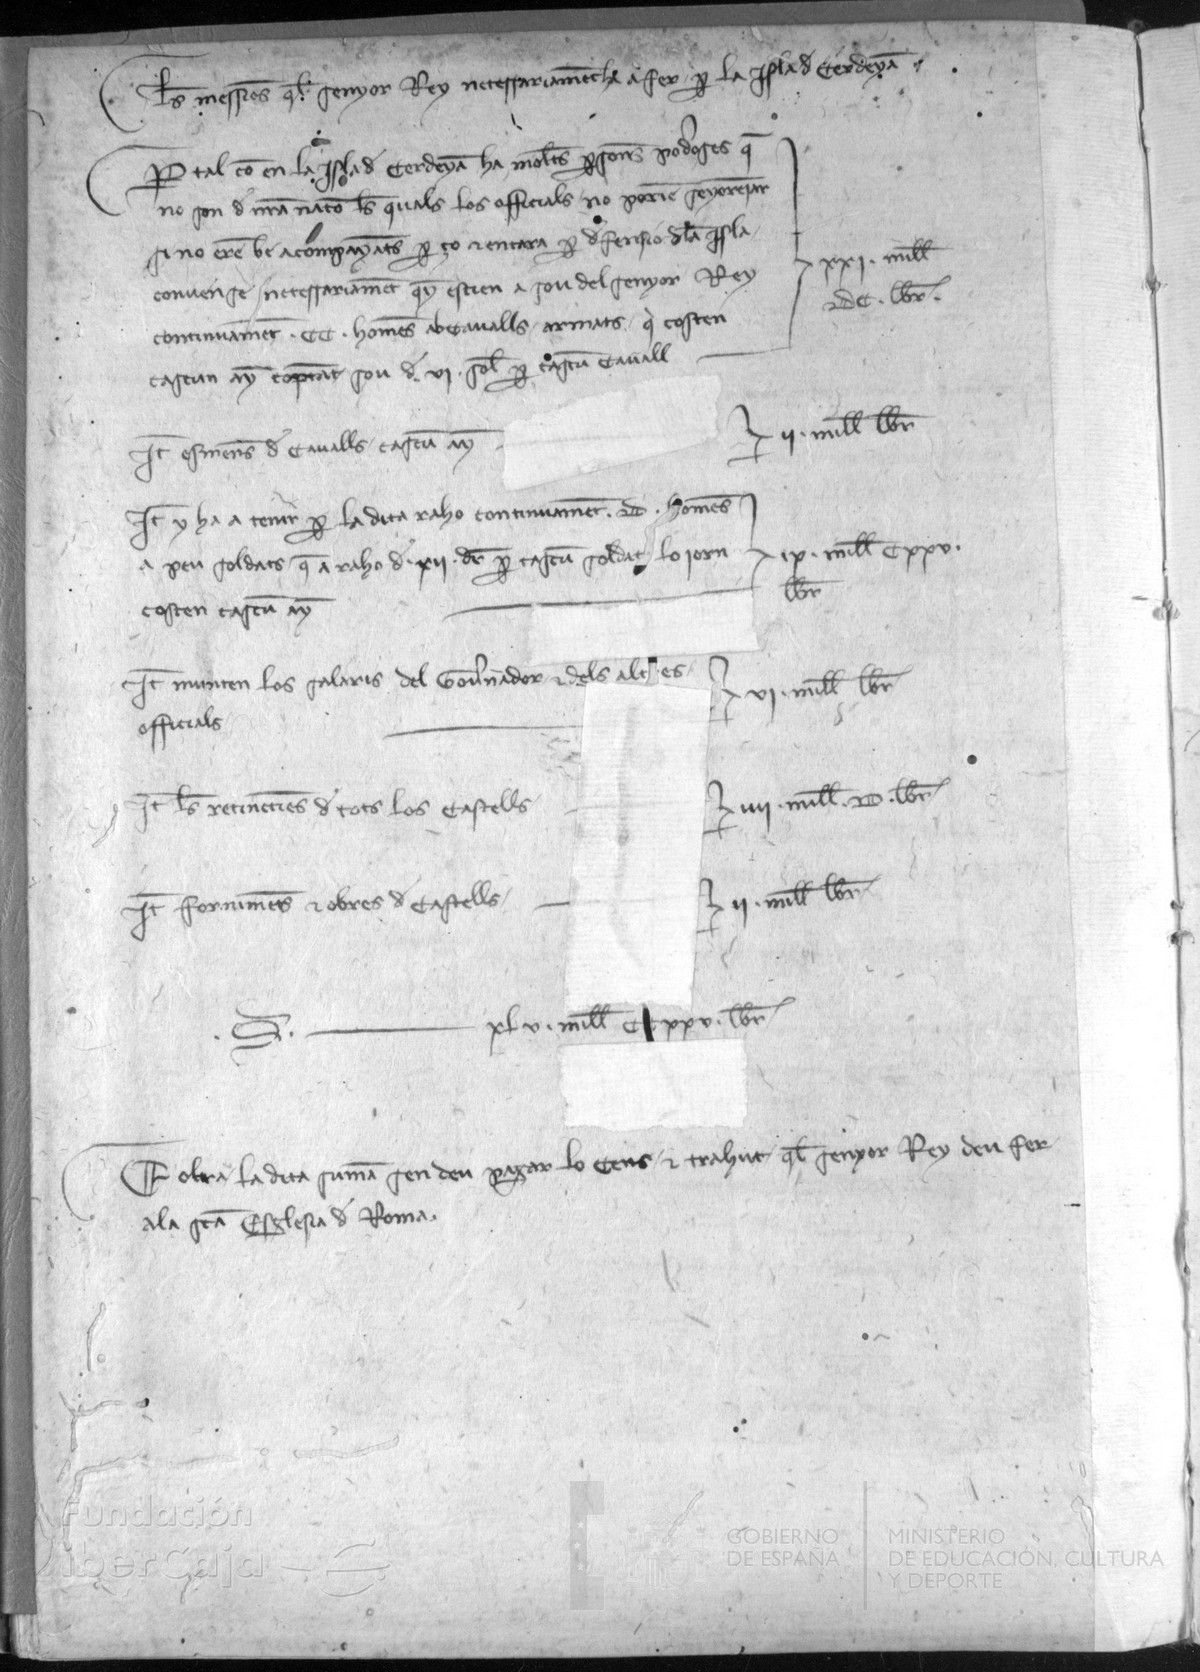 Les messions quel senyor Rey necessariament ha a fer per la Isla de Cerdeya
Per tal com en la Isla de Cerdeya ha moltes persones poderoses que
no son de nostra nacio les quals los officials no porien senyorejar
si no eren be acompayats per ço & encara per defensio dela Isla
convense necessariament quey estien a sou del senyor Rey
continuament .CC. homens ab Cavalls armats que costen
cascun any comptat sou de .VI. sol per cascun Cavall
xxi. mill
DC. lbr.
It esmenes de Cavalls cascun any
ii. mill lbr
It y ha a tenir per la dita raho continuament .D. homens
a peu soldats que a raho de .xii. dr per cascun soldat lo jorn
costen cascun any
ix. mill Cxxv.
lbr
It munten los salaris del Governador & dels altres
officials
vi. mill lbr
It les retinencies de tots los Castells
iiii. mill. D. lbr
It forniments & obres de Castells
ii. mill lbr
.S. xlv. mill CCxxv. lbr
E oltra la dita suma sen deu pagar lo Cens & trahut quel senyor Rey deu fer
ala sca Esglesia de Roma.
Fundación
iberCaja
GOBIERNO
DE ESPAÑA
MINISTERIO
DE EDUCACIÓN, CULTURA
Y DEPORTE